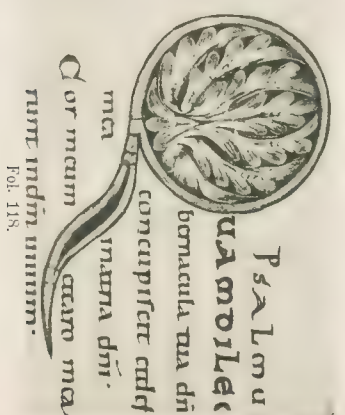 Psalmu
UAMDILEC
bernacula tua dñi
concupiscit etdef
mea inatria dñi·
Cor meum etcaro mea
runt indm̃ uiuum·
Fol. 118.